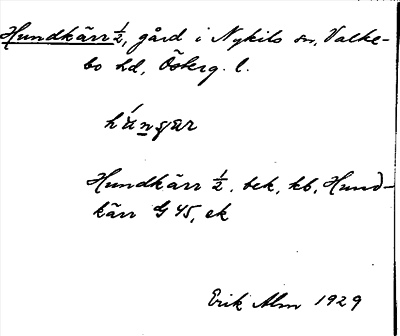 Hundkärr ½, gård i Nykils sn, Valke-
bo hd, Österg. l.
húngar
Hundkärr ½. bek. kb, Hund-
kärr G 45, ek
Erik Alm 1929